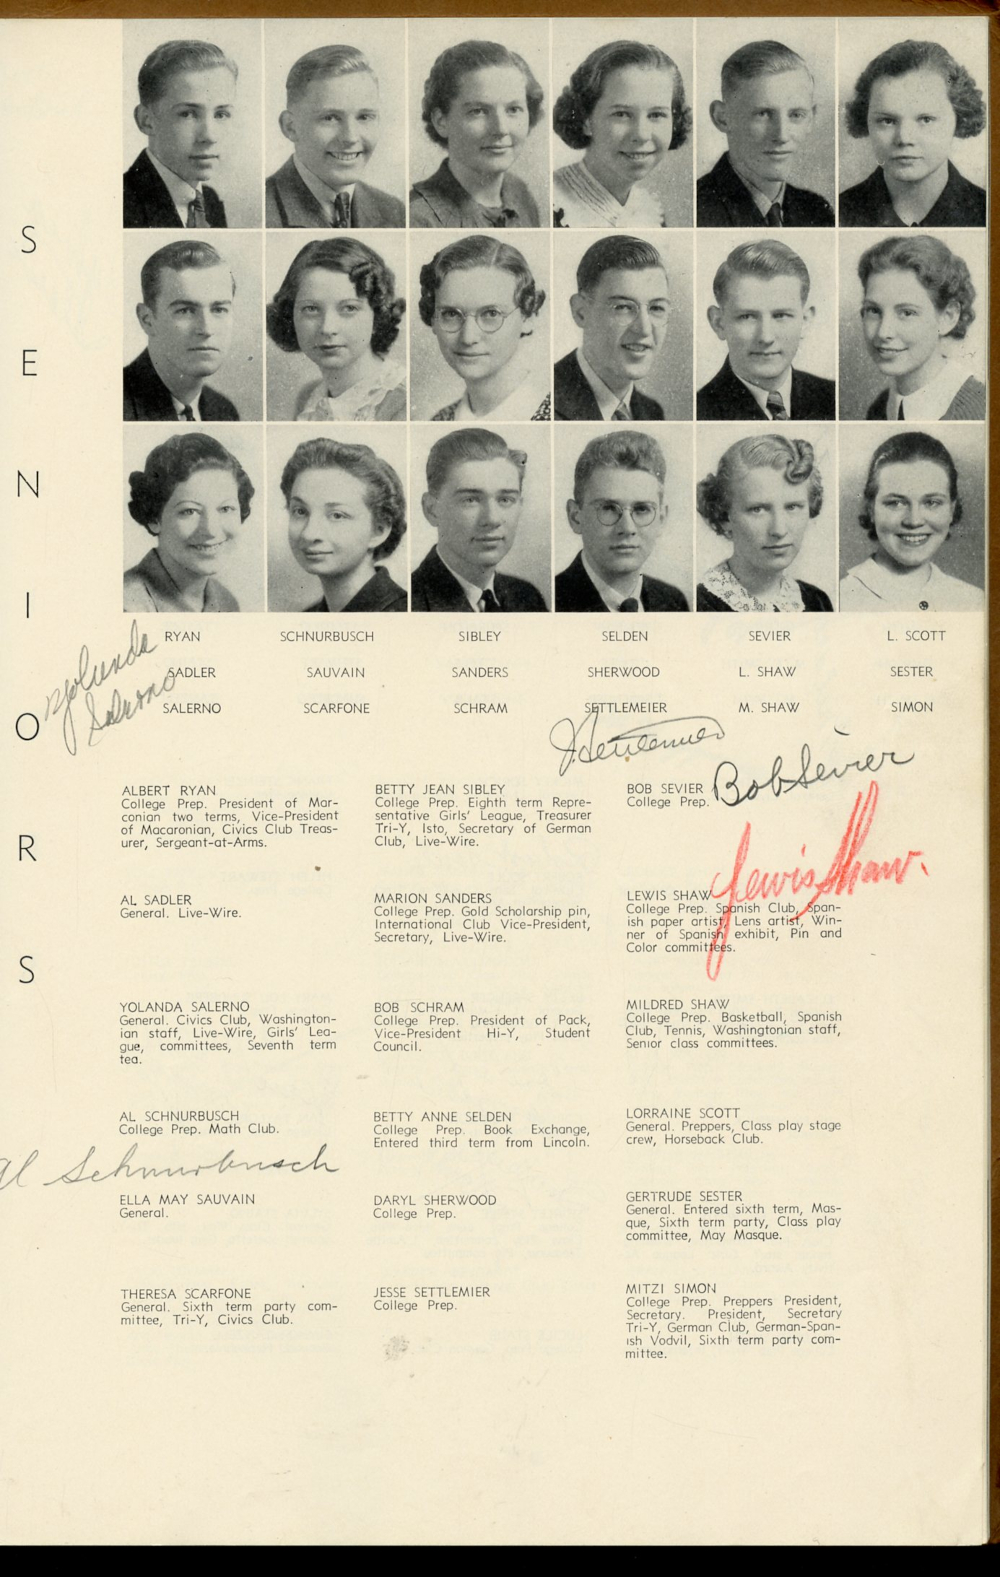 SENIORS
RYAN SCHNURBUSCH SIBLEY SELDEN SEVIER L. SCOTT
SADLER SAUVAIN SANDERS SHERWOOD L. SHAW SESTER
SALERNO SCARFONE SCHRAM SETTLEMEIER M. SHAW SIMON
Yolanda
Salerno
J. Settlemier
Bob Sevier
Lewis Shaw.
ALBERT RYAN
College Prep. President of Mar-
conian two terms, Vice-President
of Macaronian, Civics Club Treas-
urer, Sergeant-at-Arms.
AL SADLER
General. Live-Wire.
YOLANDA SALERNO
General. Civics Club, Washington-
ian staff, Live-Wire, Girls' Lea-
gue, committees, Seventh term
tea.
AL SCHNURBUSCH
College Prep. Math Club.
Al Schnurbusch
ELLA MAY SAUVAIN
General.
THERESA SCARFONE
General. Sixth term party com-
mittee, Tri-Y, Civics Club.
BETTY JEAN SIBLEY
College Prep. Eighth term Repre-
sentative Girls' League, Treasurer
Tri-Y, Isto, Secretary of German
Club, Live-Wire.
MARION SANDERS
College Prep. Gold Scholarship pin,
International Club Vice-President,
Secretary, Live-Wire.
BOB SCHRAM
College Prep. President of Pack,
Vice-President Hi-Y, Student
Council.
BETTY ANNE SELDEN
College Prep. Book Exchange,
Entered third term from Lincoln.
DARYL SHERWOOD
College Prep.
JESSE SETTLEMIER
College Prep.
BOB SEVIER
College Prep.
LEWIS SHAW
College Prep. Spanish Club, Span-
ish paper artist, Lens artist, Win-
ner of Spanish exhibit, Pin and
Color committees.
MILDRED SHAW
College Prep. Basketball, Spanish
Club, Tennis, Washingtonian staff,
Senior class committees.
LORRAINE SCOTT
General. Preppers, Class play stage
crew, Horseback Club.
GERTRUDE SESTER
General. Entered sixth term, Mas-
que, Sixth term party, Class play
committee, May Masque.
MITZI SIMON
College Prep. Preppers President,
Secretary. President, Secretary
Tri-Y, German Club, German-Span-
ish Vodvil, Sixth term party com-
mittee.